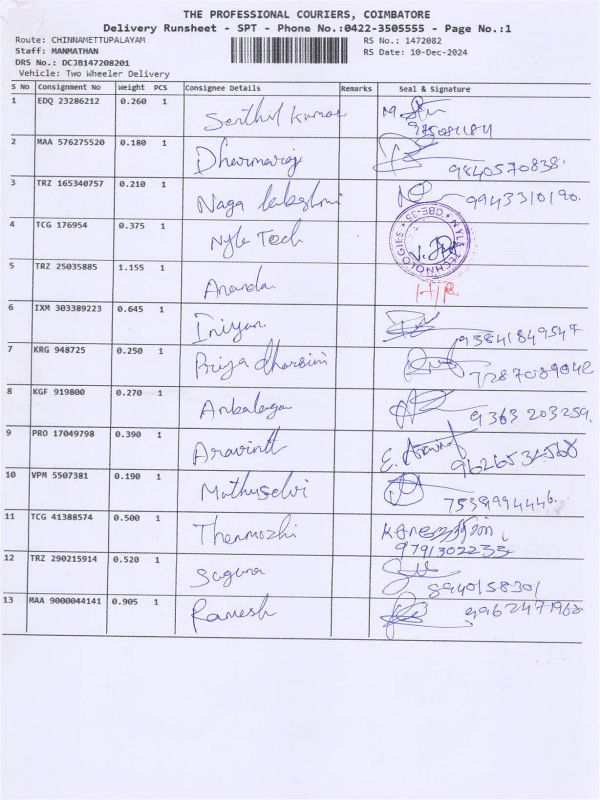 THE PROFESSIONAL COURIERS, COIMBATORE
Delivery Runsheet - SPT - Phone No.:0422-3505555 - Page No.:1
Route: CHINNAMETTUPALAYAM RS No.: 1472082
Staff: MANMATHAN RS Date: 10-Dec-2024
DRS No.: DCJB147208201
Vehicle: Two Wheeler Delivery
S No Consignment No Weight PCS Consignee Details Remarks Seal & Signature
1 EDQ 23286212 0.260 1 Senthil Kumar
2 MAA 576275520 0.180 1 Dharmaraj 9840570838.
3 TRZ 165340757 0.210 1 Naga lakshmi 9943310190.
4 TCG 176954 0.375 1 Nyle Tech NYLE TECHNOLOGIES * CBE-35 *
5 TRZ 25035885 1.155 1 Ananda
6 IXM 303389223 0.645 1 Iniyan 93841849547
7 KRG 948725 0.250 1 Priya dharsini
8 KGF 919800 0.270 1 Anbalagan 9363 203259.
9 PRO 17049798 0.390 1 Aravinth
10 VPM 5507381 0.190 1 Muthuselvi
11 TCG 41388574 0.500 1 Thenmozhi
9791302235
12 TRZ 290215914 0.520 1 Suguna 8940158301
13 MAA 9000044141 0.905 1 Ramesh 9962471968